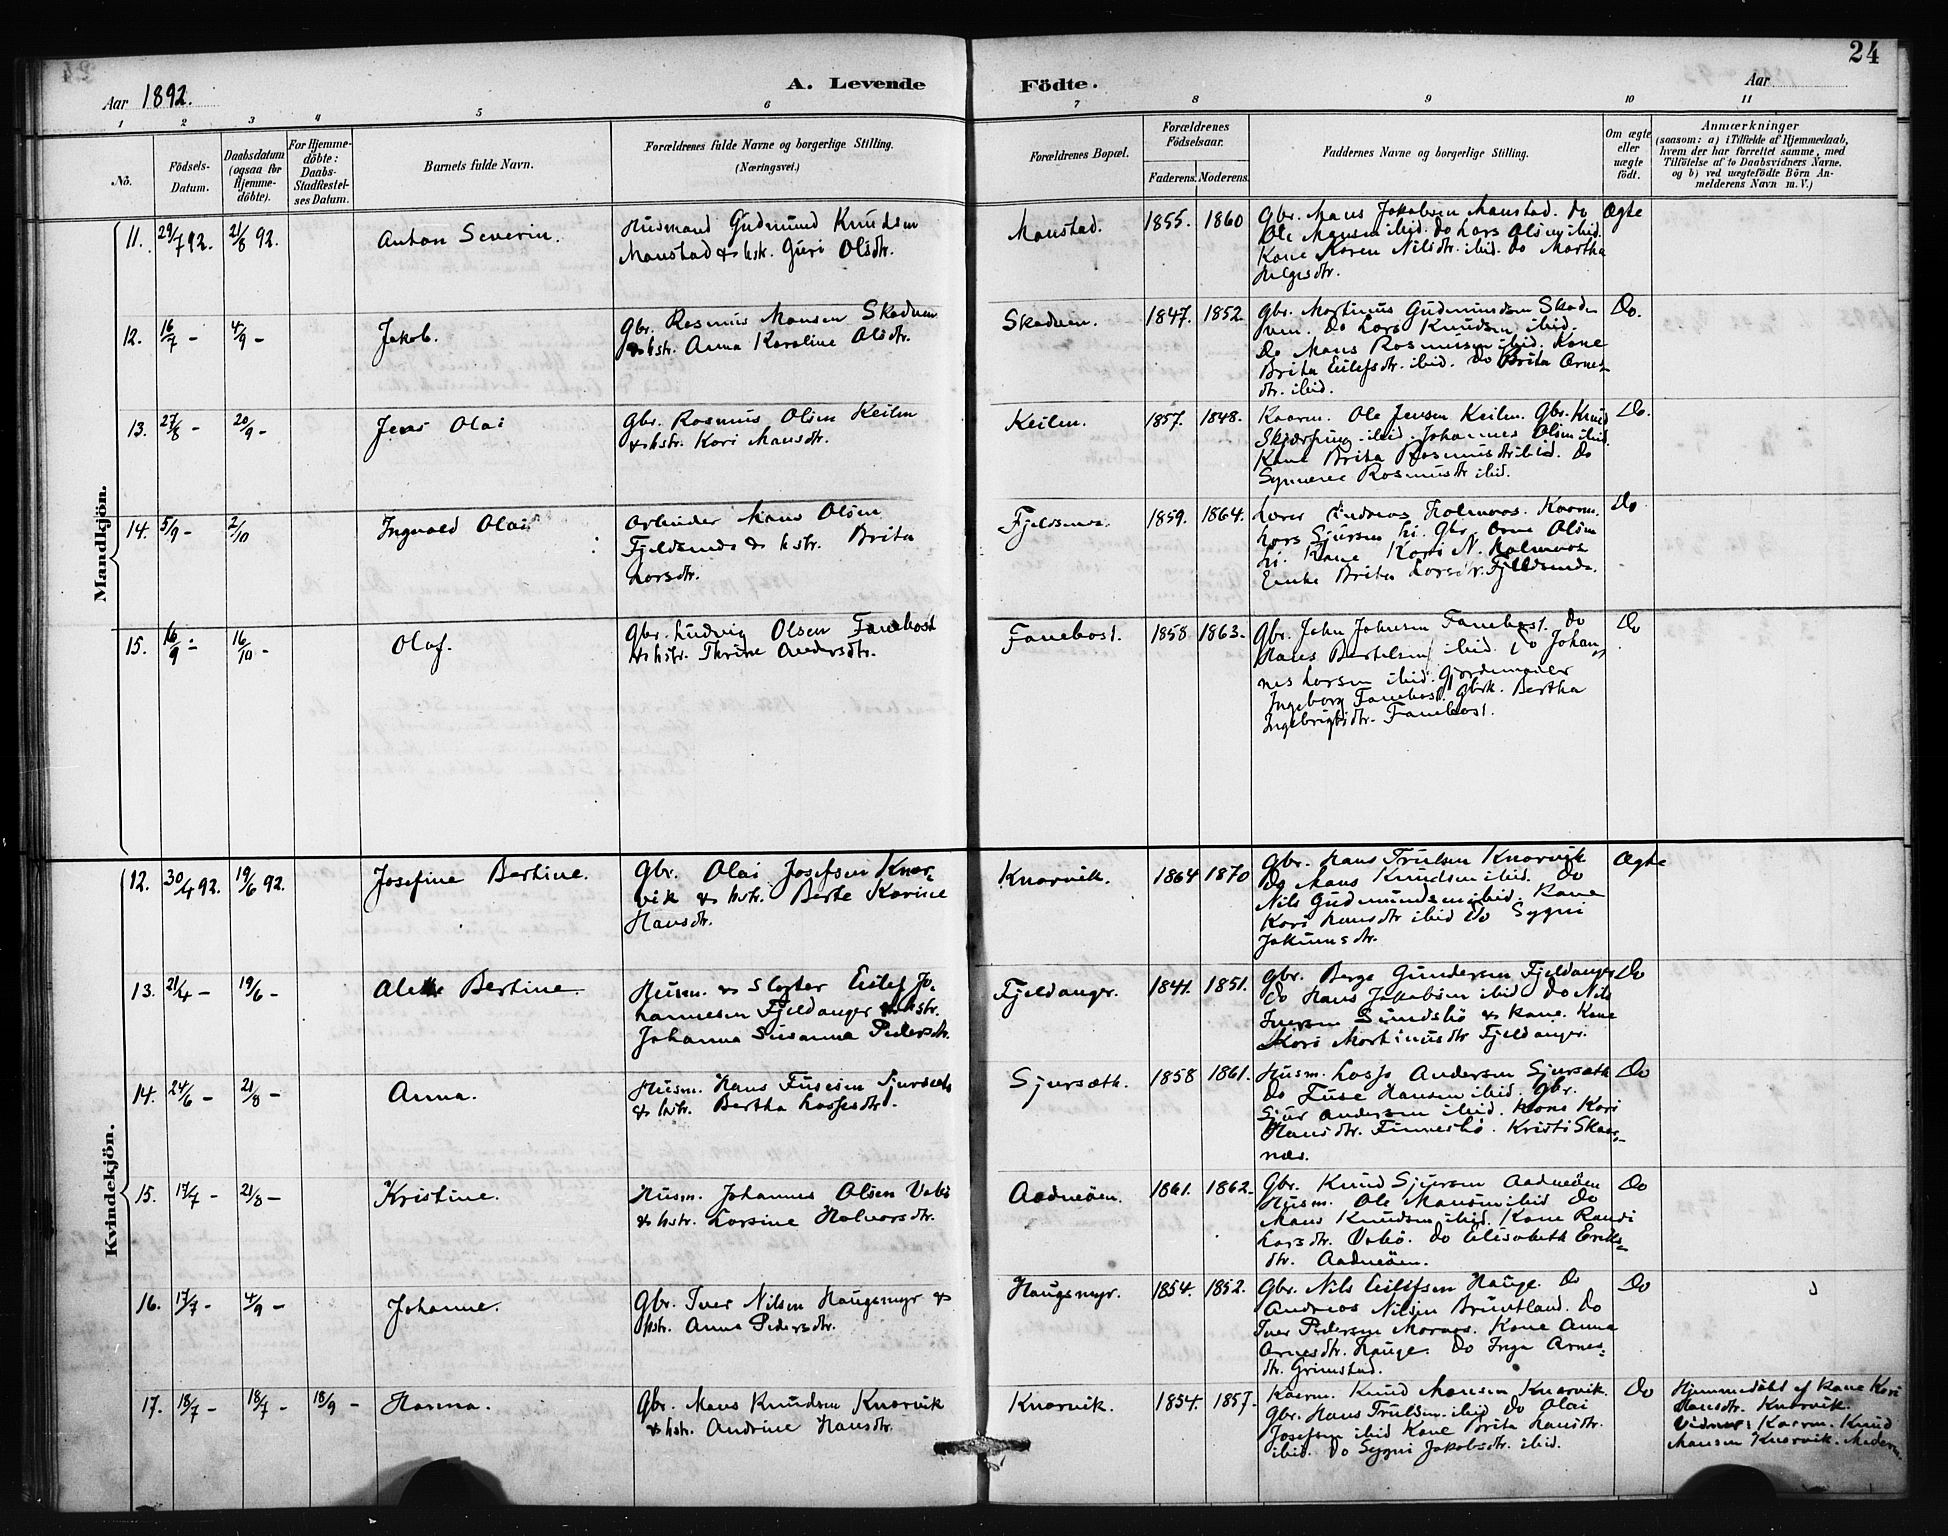 24
Aar 1892.
A. Levende Födte.
Aar
1 2 3 4 5 6 7 8 9 10 11
No.
Födsels-Datum.
Daabsdatum (ogsaa for Hjemmedöbte).
For Hjemmedöbte: Daabs-Stadfæstelses Datum.
Barnets fulde Navn.
Forældrenes fulde Navne og borgerlige Stilling.
(Næringsvei.)
Forældrenes Bopæl.
Forældrenes Födselsaar.
Faderens. Moderens.
Faddernes Navne og borgerlige Stilling.
Om ægte eller uægte födt.
Anmærkninger
(saasom: a) i Tilfælde af Hjemmedaab, hvem der har forrettet samme, med Tilföielse af to Daabsvidners Navne, og b) ved uægtefödte Börn Anmelderens Navn m. V.)
Mandkjön.
11. 29/7 92. 21/8 92. Anton Severin.
Husmand Gudmund Knudsen
Manstad & hstr. Guri Olsdtr.
Manstad. 1855. 1860
Gbr. Mans Jakobsen Manstad. Do
Ole Mansen ibid. Do Lars Olsen ibid.
Kone Karen Nilsdtr. ibid. Do Martha
Helgesdtr.
Ægte
12. 16/7 - 4/9 - Jakob.
Gbr. Rasmus Monsen Skadven
& hstr. Anna Karoline Olsdtr.
Skadven. 1847. 1852.
Gbr. Martinus Gudmundsen Skad
ven. Do Lars Knudsen ibid.
Do Mans Rasmussen ibid. Kone
Brita Eilefsdtr. ibid. Do Brita Arnes-
dtr. ibid.
Do.
13. 27/8 - 20/9 - Jens Olai
Gbr. Rasmus Olsen Keilen
& hstr. Kari Mansdtr.
Keilen. 1857. 1848.
Kaarm. Ole Jensen Keilen. Gbr. Knud
Skjærping ibid. Johannes Olsen ibid.
Kone Brita Rasmusdtr ibid. Do
Synneve Rasmusdtr ibid.
Do.
14. 5/9 - 2/10 Ingvald Olai
Arbeider Mans Olsen
Fjeldsende & hstr. Brita
Larsdtr.
Fjeldsende. 1859. 1864.
Lærer Andreas Holmaas. Kaarm.
Lars Sjursen Li. Gbr. Arne Olsen
Li. Kone Kari N. Holmaas
Enke Brita Larsdtr. Fjeldsende.
Do
15. 16/9 - 16/10 - Olaf.
Gbr. Ludvig Olsen Fanebost
& hstr. Thrine Andersdtr.
Fanebost. 1858. 1863.
Gbr. John Johnsen Fanebost. Do
Hans Bertelsen ibid. Do Johan-
nes Larsen ibid. Gjordemoder
Ingeborg Fanebost. Gbrk. Bertha
Ingebrigtsdtr. Fanebost.
Do
Kvindekjön.
12. 30/4 92. 19/6 92. Josefine Bertine.
Gbr. Olai Josefsen Knar-
vik & hstr. Berte Karine
Hansdtr.
Knarvik. 1864 1870
Gbr. Hans Trulsen Knarvik
Do Mans Knudsen ibid. Do
Nils Gudmundsen ibid. Kone
Kari Hansdtr ibid Do Sygni
Jakimsdtr.
Ægte
13. 21/4 - 19/6 - Bertine
Husm. & Slagter Eilef Jo-
hannesen Fjeldanger & hstr.
Johanna Susanna Pedersdtr.
Fjeldanger. 1841. 1851.
Gbr. Berge Gundersen Fjeldanger
Do Hans Jakobsen ibid Do Nils
Iversen Sundsbö & Kone. Kone
Kari Martinusdtr Fjeldanger.
Do
14. 24/6 - 21/8 - Anna.
Husm. Hans Fusesen Sjursæth
& hstr. Bertha Lassesdtr.
Sjursæth. 1858 1861.
Husm. Lasse Andersen Sjursæth
Do Fuse Hansen ibid. Gbr.
Sjur Andersen ibid. Kone Kari
Hansdtr. Finnesbö. Kristi Skaar-
næs.
Do
15. 17/7 - 21/8 - Kristine.
Husm. Johannes Olsen Vabö
& hstr. Larsine Halvorsdtr.
Aadneöen. 1861. 1862.
Gbr. Knud Sjursen Aadneöen
Husm. Ole Mansen ibid Do
Mans Knudsen ibid. Kone Randi
Larsdtr. Vabö. Do Elisabeth Eriks-
dtr. Aadneöen.
Do
16. 17/7 - 4/9 - Johanne.
Gbr. Iver Nilsen Haugsmyr &
hstr. Anna Pedersdtr.
Haugsmyr. 1854. 1852.
Gbr. Nils Eilefsen Hauge. Do
Andreas Nilsen Bruntland. Do
Iver Pedersen Marøs. Kone Anna
Arnesdtr. Hauge. Do Inga Arnes-
dtr. Grimstad.
Do
17. 18/7 - 18/7 - 18/9 - Hanna.
Gbr. Mans Knudsen Knarvik
& hstr. Andrine Hansdtr.
Knarvik. 1854. 1857.
Kaarm. Knud Mansen Knarvik.
Gbr. Hans Trulsen ibid Do Olai
Josefsen ibid Kone Brita Hansdtr.
ibid. Do Sygni Jakobsdtr. ibid.
Do
Hjemmedöbt af Kone Kari
Hansdtr. Knarvik.
Vidner: Kaarm. Knud
Mansen Knarvik.